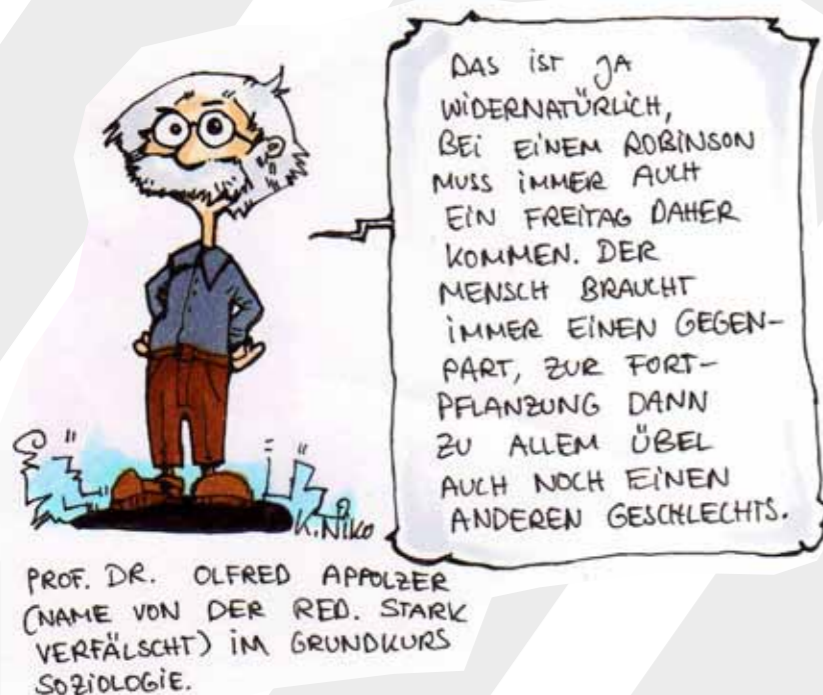 DAS IST JA
WIDERNATÜRLICH,
BEI EINEM ROBINSON
MUSS IMMER AUCH
EIN FREITAG DAHER
KOMMEN. DER
MENSCH BRAUCHT
IMMER EINEN GEGEN-
PART, ZUR FORT-
PFLANZUNG DANN
ZU ALLEM ÜBEL
AUCH NOCH EINEN
ANDEREN GESCHLECHTS.
K. NIKO
PROF. DR. OLFRED APPOLZER
(NAME VON DER RED. STARK
VERFÄLSCHT) IM GRUNDKURS
SOZIOLOGIE.